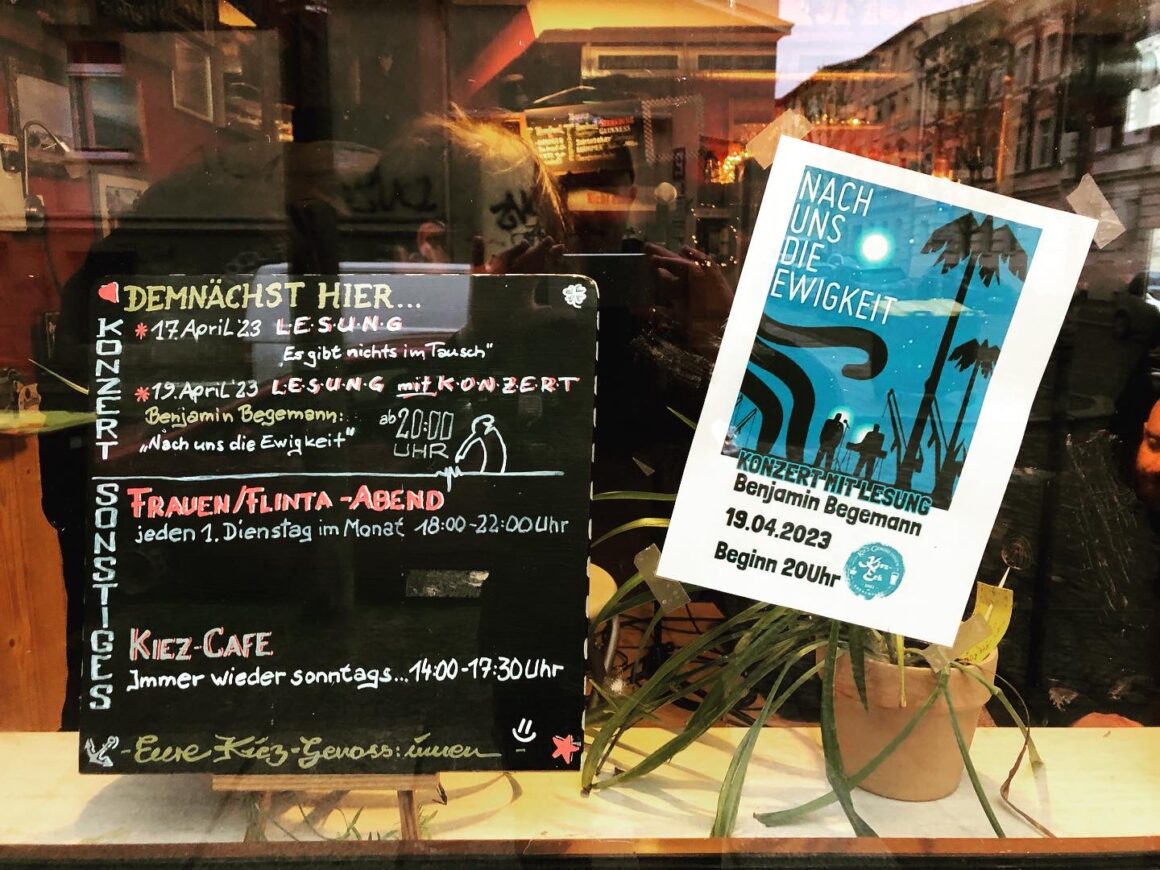 DEMNÄCHST HIER...
KONZERT
*17. April '23 L·E·S·U·N·G
„Es gibt nichts im Tausch"
*19. April '23 L·E·S·U·N·G mit K·O·N·Z·E·R·T
Benjamin Begemann:
„Nach uns die Ewigkeit"
ab 20:00
UHR
SONSTIGES
FRAUEN/FLINTA-ABEND
jeden 1. Dienstag im Monat 18:00-22:00 Uhr
KIEZ-CAFE
Immer wieder sonntags... 14:00-17:30 Uhr
- Eure Kiez-Genoss:innen
NACH
UNS
DIE
EWIGKEIT
KONZERT MIT LESUNG
Benjamin Begemann
19.04.2023
Beginn 20Uhr
GUINNESS